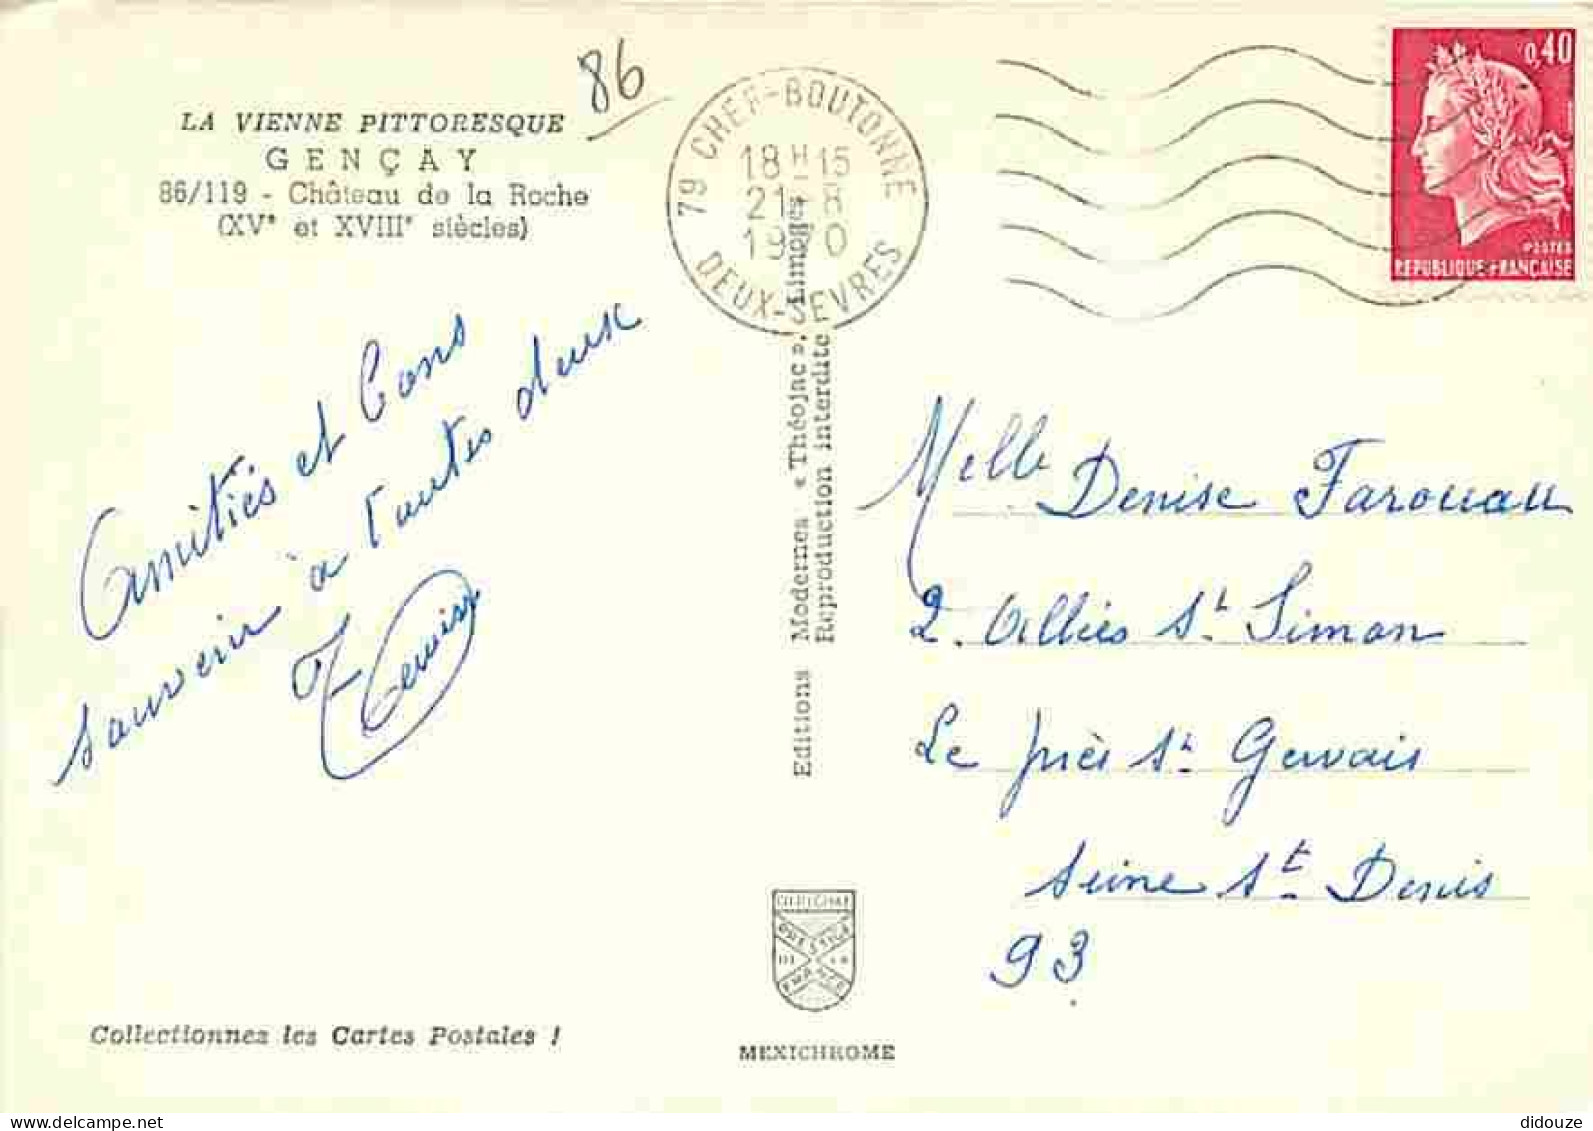 86
LA VIENNE PITTORESQUE
GENÇAY
86/119 - Château de la Roche
(XVe et XVIIIe siècles)
79 CHEF-BOUTONNE
18H15
21-8
1970
DEUX-SEVRES
0,40
POSTES
REPUBLIQUE FRANÇAISE
Amitiés et bons
souvenir à toutes deux
Editions Modernes « Théojac », Limoges
Reproduction interdite
Melle Denise Farouau
2. Alliés St Simon
Le près St Gervais
Seine St Denis
93
PRESTIGE
FRANCE
Collectionnez les Cartes Postales !
MEXICHROME
didouze